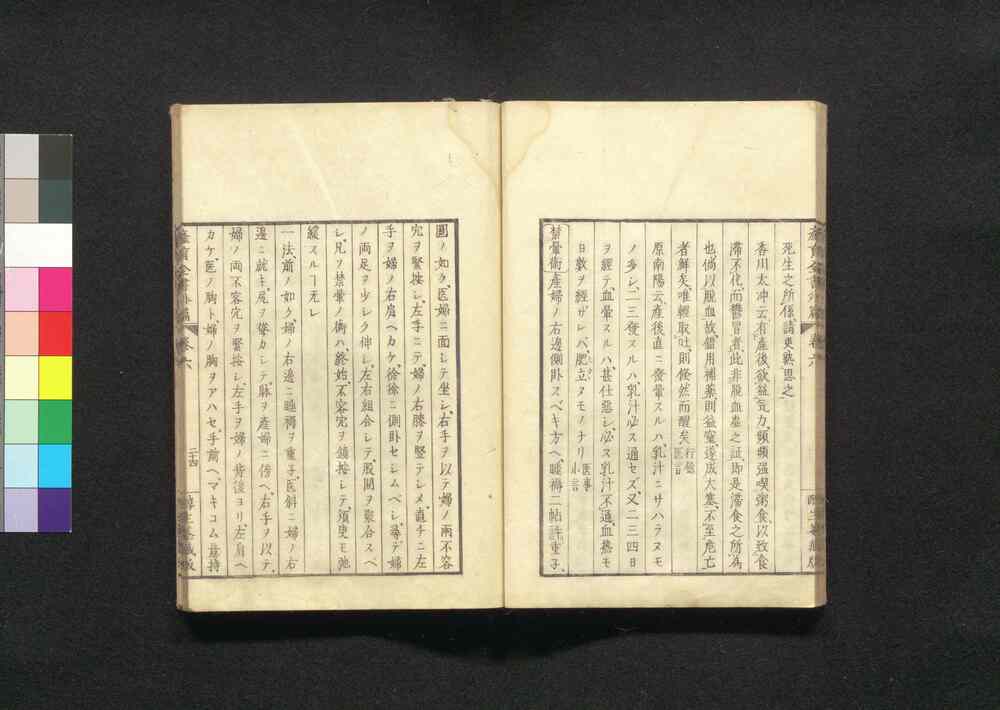 死生之所係、請更熟思之
香川太冲云、有產後欲益氣力、頻頻强喫粥食、以致食
滯不化、而欝冒者、此非脫血虛之証、即是滯食之所為
也、倘以脫血故、錯用補藥、則益窒、遂成大塞、不至危亡
者鮮矣、唯輕取吐、則倐然而醒矣 行餘医言
原南陽云、產後直ニ發暈スルハ、乳汁ニサハラヌモ
ノ多シ、二三發スルハ、乳汁必ス通セズ、又二三四日
ヲ經テ血暈スルハ、甚仕惡シ、必ス乳汁不通、血熱モ
日數ヲ經ザレバ、肥立ヌモノナリ 医事小言
禁暈術 產婦ノ右邊側卧スベキ方ヘ、𦂶褥二帖許重子、
圖ノ如ク、医婦ニ面シテ坐シ、右手ヲ以テ婦ノ兩不容
穴ヲ緊按シ、左手ニテ、婦ノ右膝ヲ竪テシメ、直チニ左
手ヲ婦ノ右肩ヘカケ、徐徐ニ側卧セシムベシ、尋デ婦
ノ両足ヲ少シク伸シ、左右組合シテ、股間ヲ聚合スベ
シ、凡ソ禁暈ノ術ハ、終始不容穴ヲ鎮按シテ、須臾モ弛
緩スルヿ无レ
一法、前ノ如ク、婦ノ右邊ニ褥ヲ重子、医斜ニ婦ノ右
邊ニ就キ、尻ヲ聳カシテ、膝ヲ產婦ニ傍ヘ、右手ヲ以テ、
婦ノ両不容穴ヲ緊按シ、左手ヲ婦ノ背後ヨリ、左肩ヘ
カケ、医ノ胸ト、婦ノ胸ヲアハセ、手前ヘマキコム意持
產育全書外篇
卷六
二十四